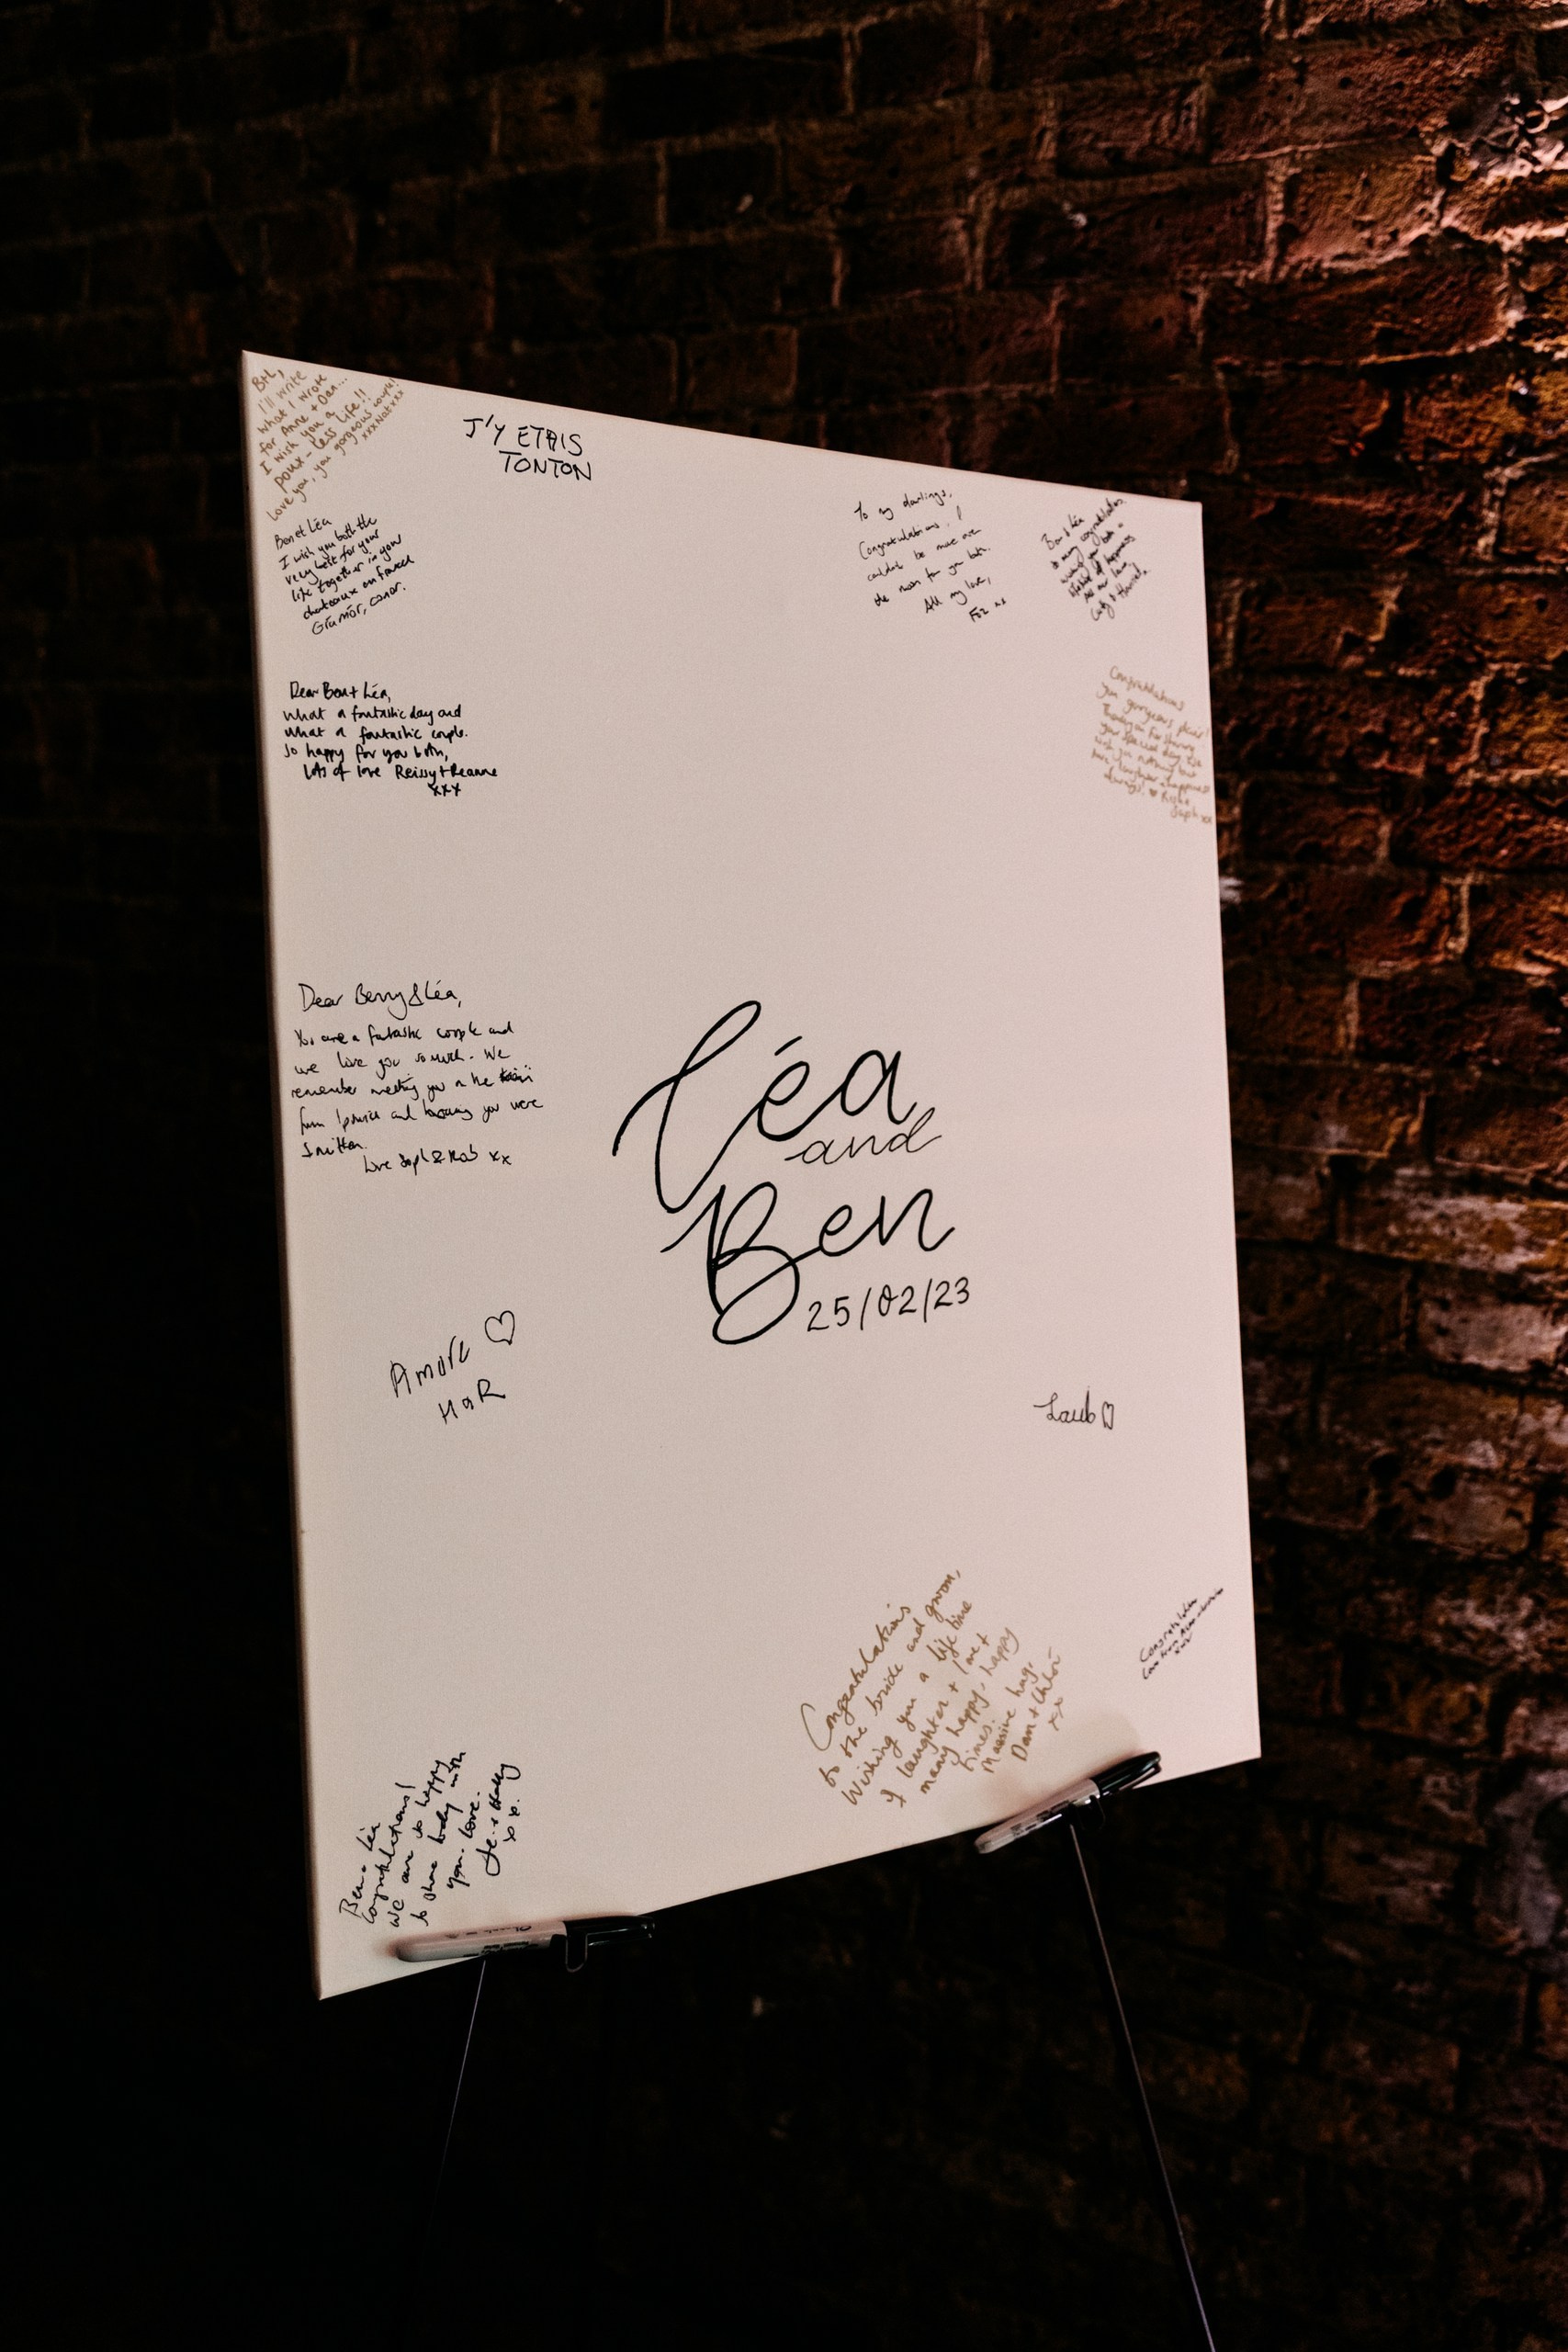 B+L,
I'll write
what I wrote
for Anne + Dan...
I wish you a
poux-less life!!
Love you, you gorgeous couple!
xxx Nat xxx
J'Y ETAIS
TONTON
Ben et Léa
I wish you both the
very best for your
life together in your
chateaux en france
Gra mór, Conor.
To my darlings,
Congratulations. I
couldn't be more over
the moon for you both.
All my love,
Ben & Léa
so many congratulations.
wishing you both a
of happiness
All our love
Congratulations
you gorgeous pair!
Thank you for sharing
your special day. We
wish you nothing but
love, laughter & happiness
always! ♥
Soph xx
Dear Ben + Léa,
What a fantastic day and
what a fantastic couple.
So happy for you both,
lots of love Reissy + Reanne
xxx
Dear Benny & Léa,
You are a fantastic couple and
we love you so much. We
remember meeting you on the
from and knowing you were
smitten.
Love Soph & Rob xx
Léa
and
Ben
25/02/23
Amore ♡
Laub ♡
Congratulations
to the bride and groom,
Wishing you a life time
of laughter + love +
many happy, happy
times.
Massive hug,
Dan + Chloé
xx
Congratulations
Love from
Ben + Léa
Congratulations!
We are so happy
to share today with
you. Love.
xx.